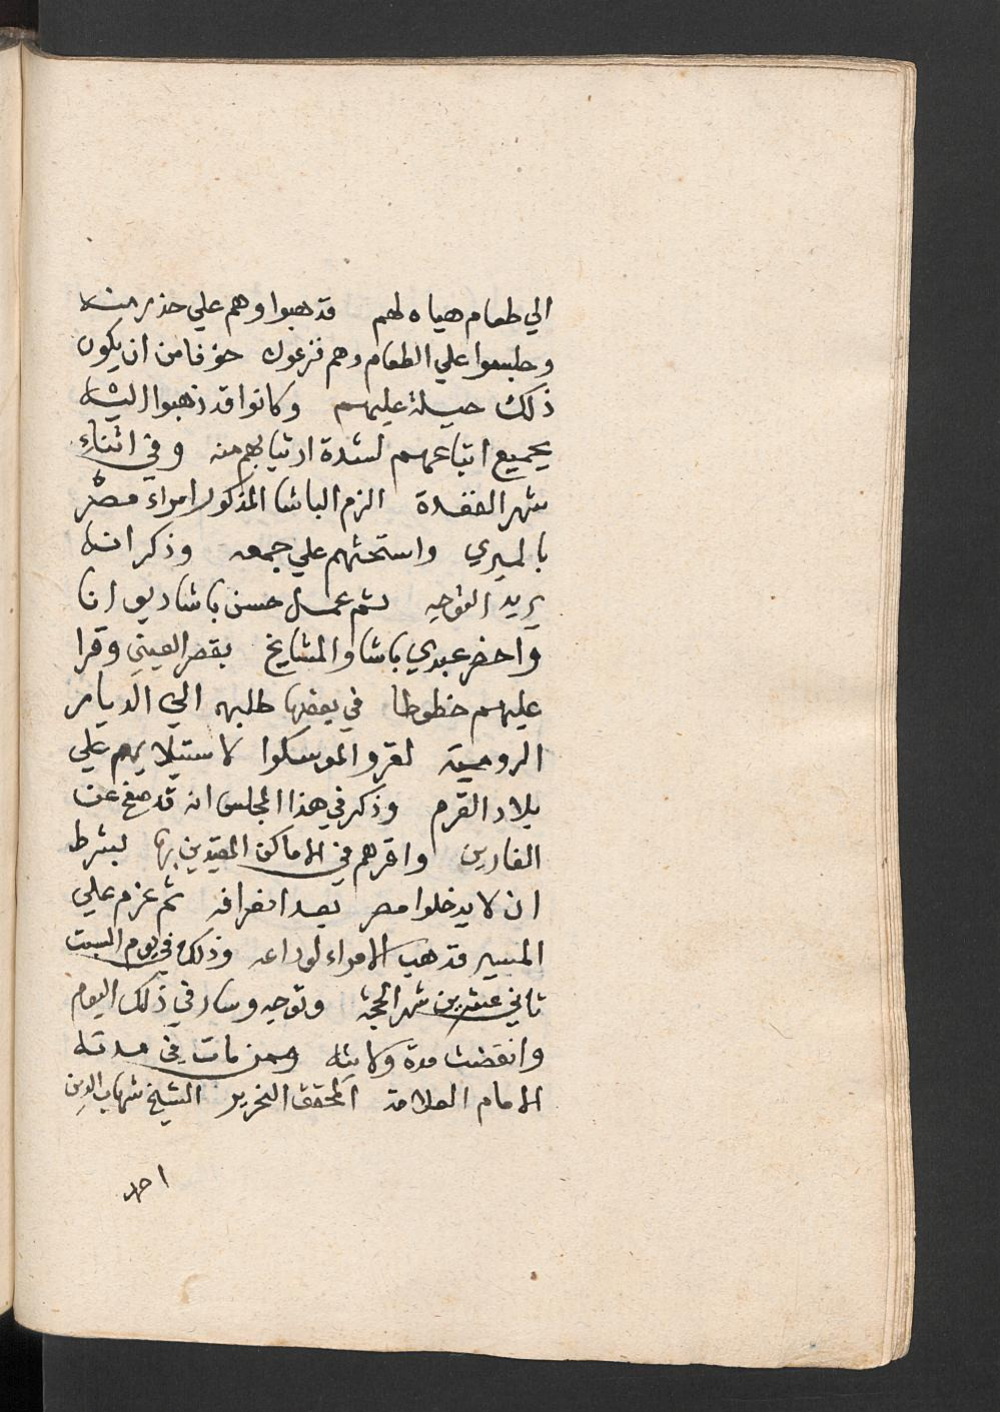 الي طعام هياه لهم فذهبوا وهم علي حذر منه
وجلسوا علي الطعام وهم فزعون خوفا من ان يكون
ذلك حيلة عليهم وكانوا قد ذهبوا اليه
بجميع اتباعهم لشدة ارتيابهم منه وفي اثناء
شهر القعدة الزم الباشا المذكور امراء مصر
بالميري واستحثهم علي جمعه وذكر انه
يريد التوجه ثم عمل حسن باشا ديوانا
واحضر عبدي باشا والمشايخ بقصر العيني وقرا
عليهم خطوطا في بعضها طلبه الي الديار
الرومية لغزو الموسكوا لاستيلايهم علي
بلاد القرم وذكر في هذا المجلس انه قد صفح عن
الفارين واقرهم في الاماكن المقيمين بها بشرط
ان لا يدخلوا مصر بعد انصرافه ثم عزم علي
المسير فذهب الامراء لوداعه وذلك في يوم السبت
ثاني عشرين شهر الحجة وتوجه وسار في ذلك اليوم
وانقضت مدة ولايته وممن مات في مدته
الامام العلامة المحقق النحرير الشيخ شهاب الدين
احمد